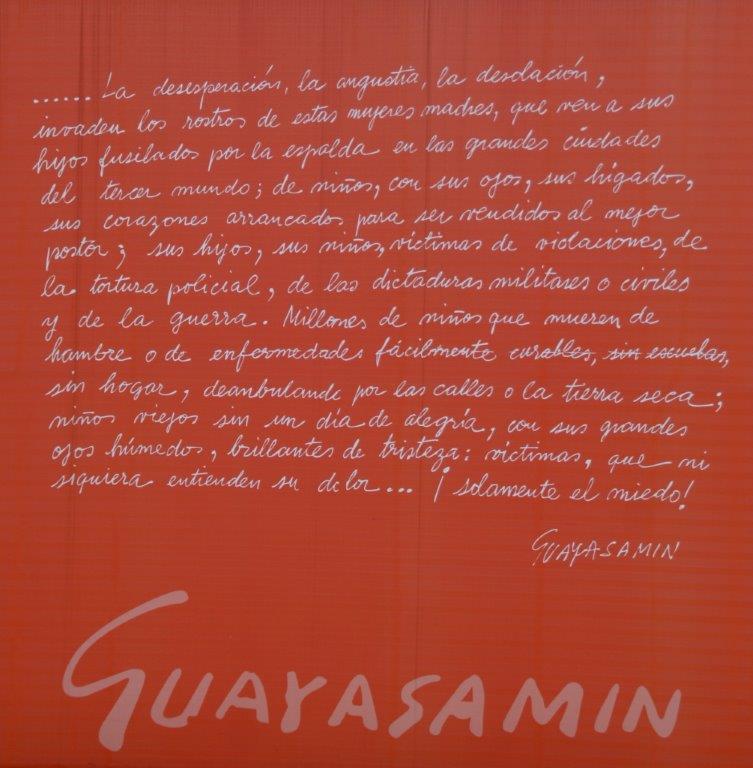 ...... La desesperación, la angustia, la desolación,
invaden los rostros de estas mujeres madres, que ven a sus
hijos fusilados por la espalda en las grandes ciudades
del tercer mundo; de niños, con sus ojos, sus hígados,
sus corazones arrancados para ser vendidos al mejor
postor; sus hijos, sus niños, víctimas de violaciones, de
la tortura policial, de las dictaduras militares o civiles
y de la guerra. Millones de niños que mueren de
hambre o de enfermedades fácilmente curables, sin escuelas,
sin hogar, deambulando por las calles o la tierra seca;
niños viejos sin un día de alegría, con sus grandes
ojos húmedos, brillantes de tristeza: víctimas, que ni
siquiera entienden su dolor... ¡solamente el miedo!
GUAYASAMIN
GUAYASAMIN